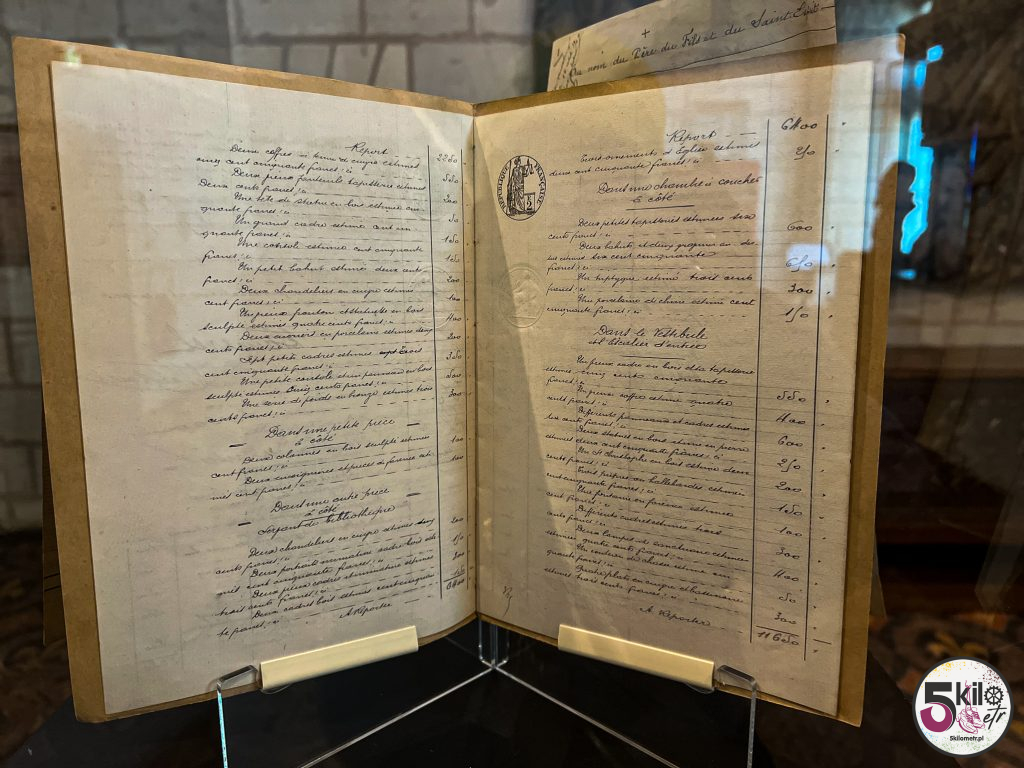 +
Au nom du Père du Fils et du Saint-Esprit
Report 2260
Deux coffres
cinq cent cinquante francs, ci 550
Deux vieux fauteuils tapisserie estimés
Deux cents francs, ci 200
Une tête de statue en bois estimée cin-
quante francs, ci 50
Un grand cadre estimé cent cin-
quante francs, ci 150
Une console estimée cent cinquante
francs, ci 150
Un petit bahut estimé deux cents
francs, ci 200
Deux chandeliers en cuivre estimés
cent francs, ci 100
Un vieux en bois
sculpté estimés quatre cents francs, ci 400
Deux en porcelaine estimés deux
cents francs, ci 200
Sept petits cadres estimés trois
cent cinquante francs, ci 350
Une petite console et un panneau en bois
sculpté estimés cinq cents francs, ci 500
Une série de poids en bronze estimés trois
cents francs, ci 300
— Dans une petite pièce —
à côté
Deux colonnes en bois sculpté estimées
cent francs, ci 100
Deux et pièces de faïence esti-
més cent francs, ci 100
— Dans une autre pièce —
à côté
Servant de bibliothèque
Deux chandeliers en cuivre estimés deux
cents francs, ci 200
Deux portraits miniature cadre bois esti-
més cent cinquante francs, ci 150
Deux vieux cadres et miniature estimés
trois cents francs, ci 300
Deux cadres bois estimés cent cinquan-
te francs, ci 150
A Reporter 6400
RÉPUBLIQUE FRANÇAISE
Report 6400
Trois ornements d'Église estimés
deux cent cinquante francs, ci 250
Dans une chambre à coucher
à côté
Deux petites tapisseries estimées six
cents francs, ci 600
Deux bahuts et
estimés six cent cinquante
francs, ci 650
Un triptyque estimé trois cents
francs, ci 300
Une porcelaine de chine estimé cent
cinquante francs, ci 150
Dans le Vestibule
et Escalier d'entrée
Un vieux cadre en bois tapisserie
estimés cinq cent cinquante
francs, ci 550
Un vieux coffre estimé quatre
cents francs, ci 400
Différents panneaux et cadres estimés
six cents francs, ci 600
Deux statues en bois et une en pierre
estimés deux cent cinquante francs, ci 250
Un St Christophe en bois estimé deux
cents francs, ci 200
Trois piques ou hallebardes estimées
cent cinquante francs, ci 150
Une fontaine en faïence estimée
cent francs, ci 100
Différents cadres estimés trois
cents francs, ci 300
Deux lampes de sanctuaire estimées
quatre cents francs, ci 400
Un couteau de chasse estimé cin-
quante francs, ci 50
Quatre plats en cuivre
estimés trois cents francs, ci 300
A Reporter 11650
5kilometr
5kilometr.pl